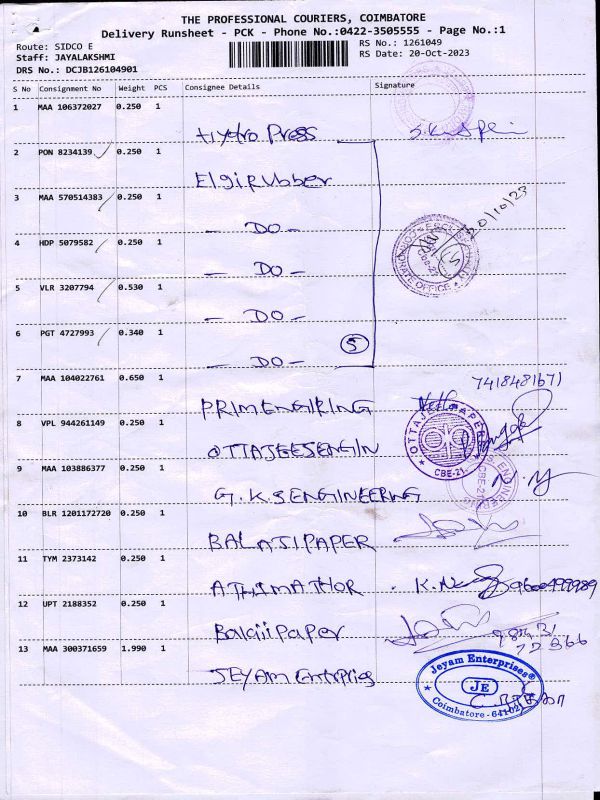 THE PROFESSIONAL COURIERS, COIMBATORE
Delivery Runsheet - PCK - Phone No.:0422-3505555 - Page No.:1
Route: SIDCO E
RS No.: 1261049
Staff: JAYALAKSHMI
RS Date: 20-Oct-2023
DRS No.: DCJB126104901
S No Consignment No Weight PCS Consignee Details Signature
1 MAA 106372027 0.250 1
Hydro Press
2 PON 8234139 0.250 1
Elgirubber
3 MAA 570514383 0.250 1
- DO -
20/10/23
4 HDP 5079582 0.250 1
- DO -
5 VLR 3207794 0.530 1
- DO -
6 PGT 4727993 0.340 1
5
- DO -
7 MAA 104022761 0.650 1
7418481671
PRIMENGIRING
8 VPL 944261149 0.250 1
OTTAJEE PAPER
CBE-21
OTTAJEESENGIN
9 MAA 103886377 0.250 1
N. y
G.K.SENGINEERING
10 BLR 1201172720 0.250 1
BALAJIPAPER
11 TYM 2373142 0.250 1
ATHIMATHOR
9600499989
12 UPT 2188352 0.250 1
Balajipaper
13 MAA 300371659 1.990 1
Jeyam Enterprises
JE
Coimbatore - 641021
JEYAM Enterprises